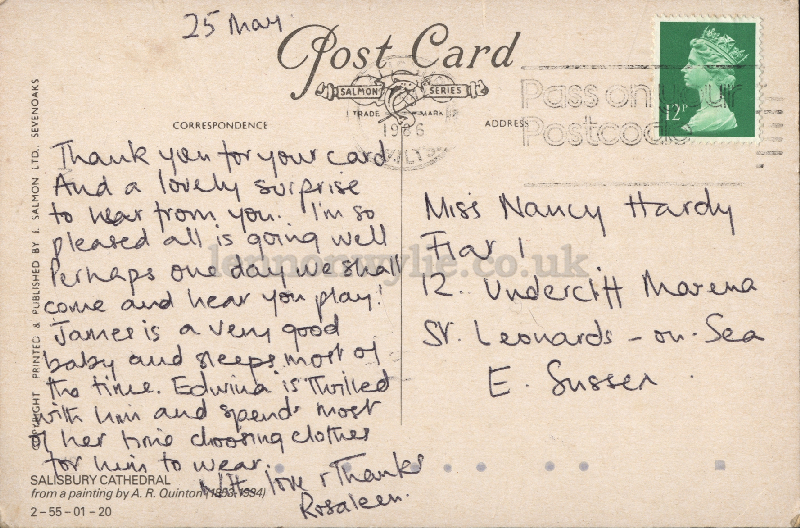 25 May.
Post Card
SALMON SERIES
TRADE MARK
CORRESPONDENCE
ADDRESS
1986
WILTS
Pass on your
Postcode
12P
Thank you for your card
And a lovely surprise
to hear from you. I'm so
pleased all is going well
Perhaps one day we shall
come and hear you play!
James is a very good
baby and sleeps most of
the time. Edwina is thrilled
with him and spends most
of her time choosing clothes
for him to wear.
With love & Thanks
Rosaleen.
Miss Nancy Hardy
Flat 1
12. Undercliff Marena
St. Leonards - on - Sea
E. Sussex.
lennonwylie.co.uk
COPYRIGHT PRINTED & PUBLISHED BY J. SALMON LTD. SEVENOAKS
SALISBURY CATHEDRAL
from a painting by A. R. Quinton (1853-1934)
2-55-01-20